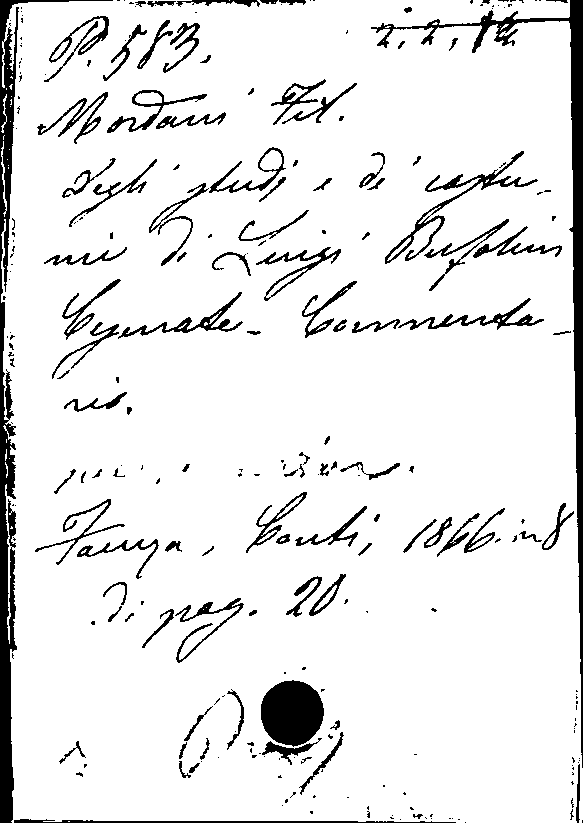 P. 583. 2. 2, 12
Mordani Fil.
Degli studj e de' costu-
mi di Luigi Bufalini
Cesenate - Commenta-
rio.
Faenza, Conti, 1866. in 8
di pag. 20.